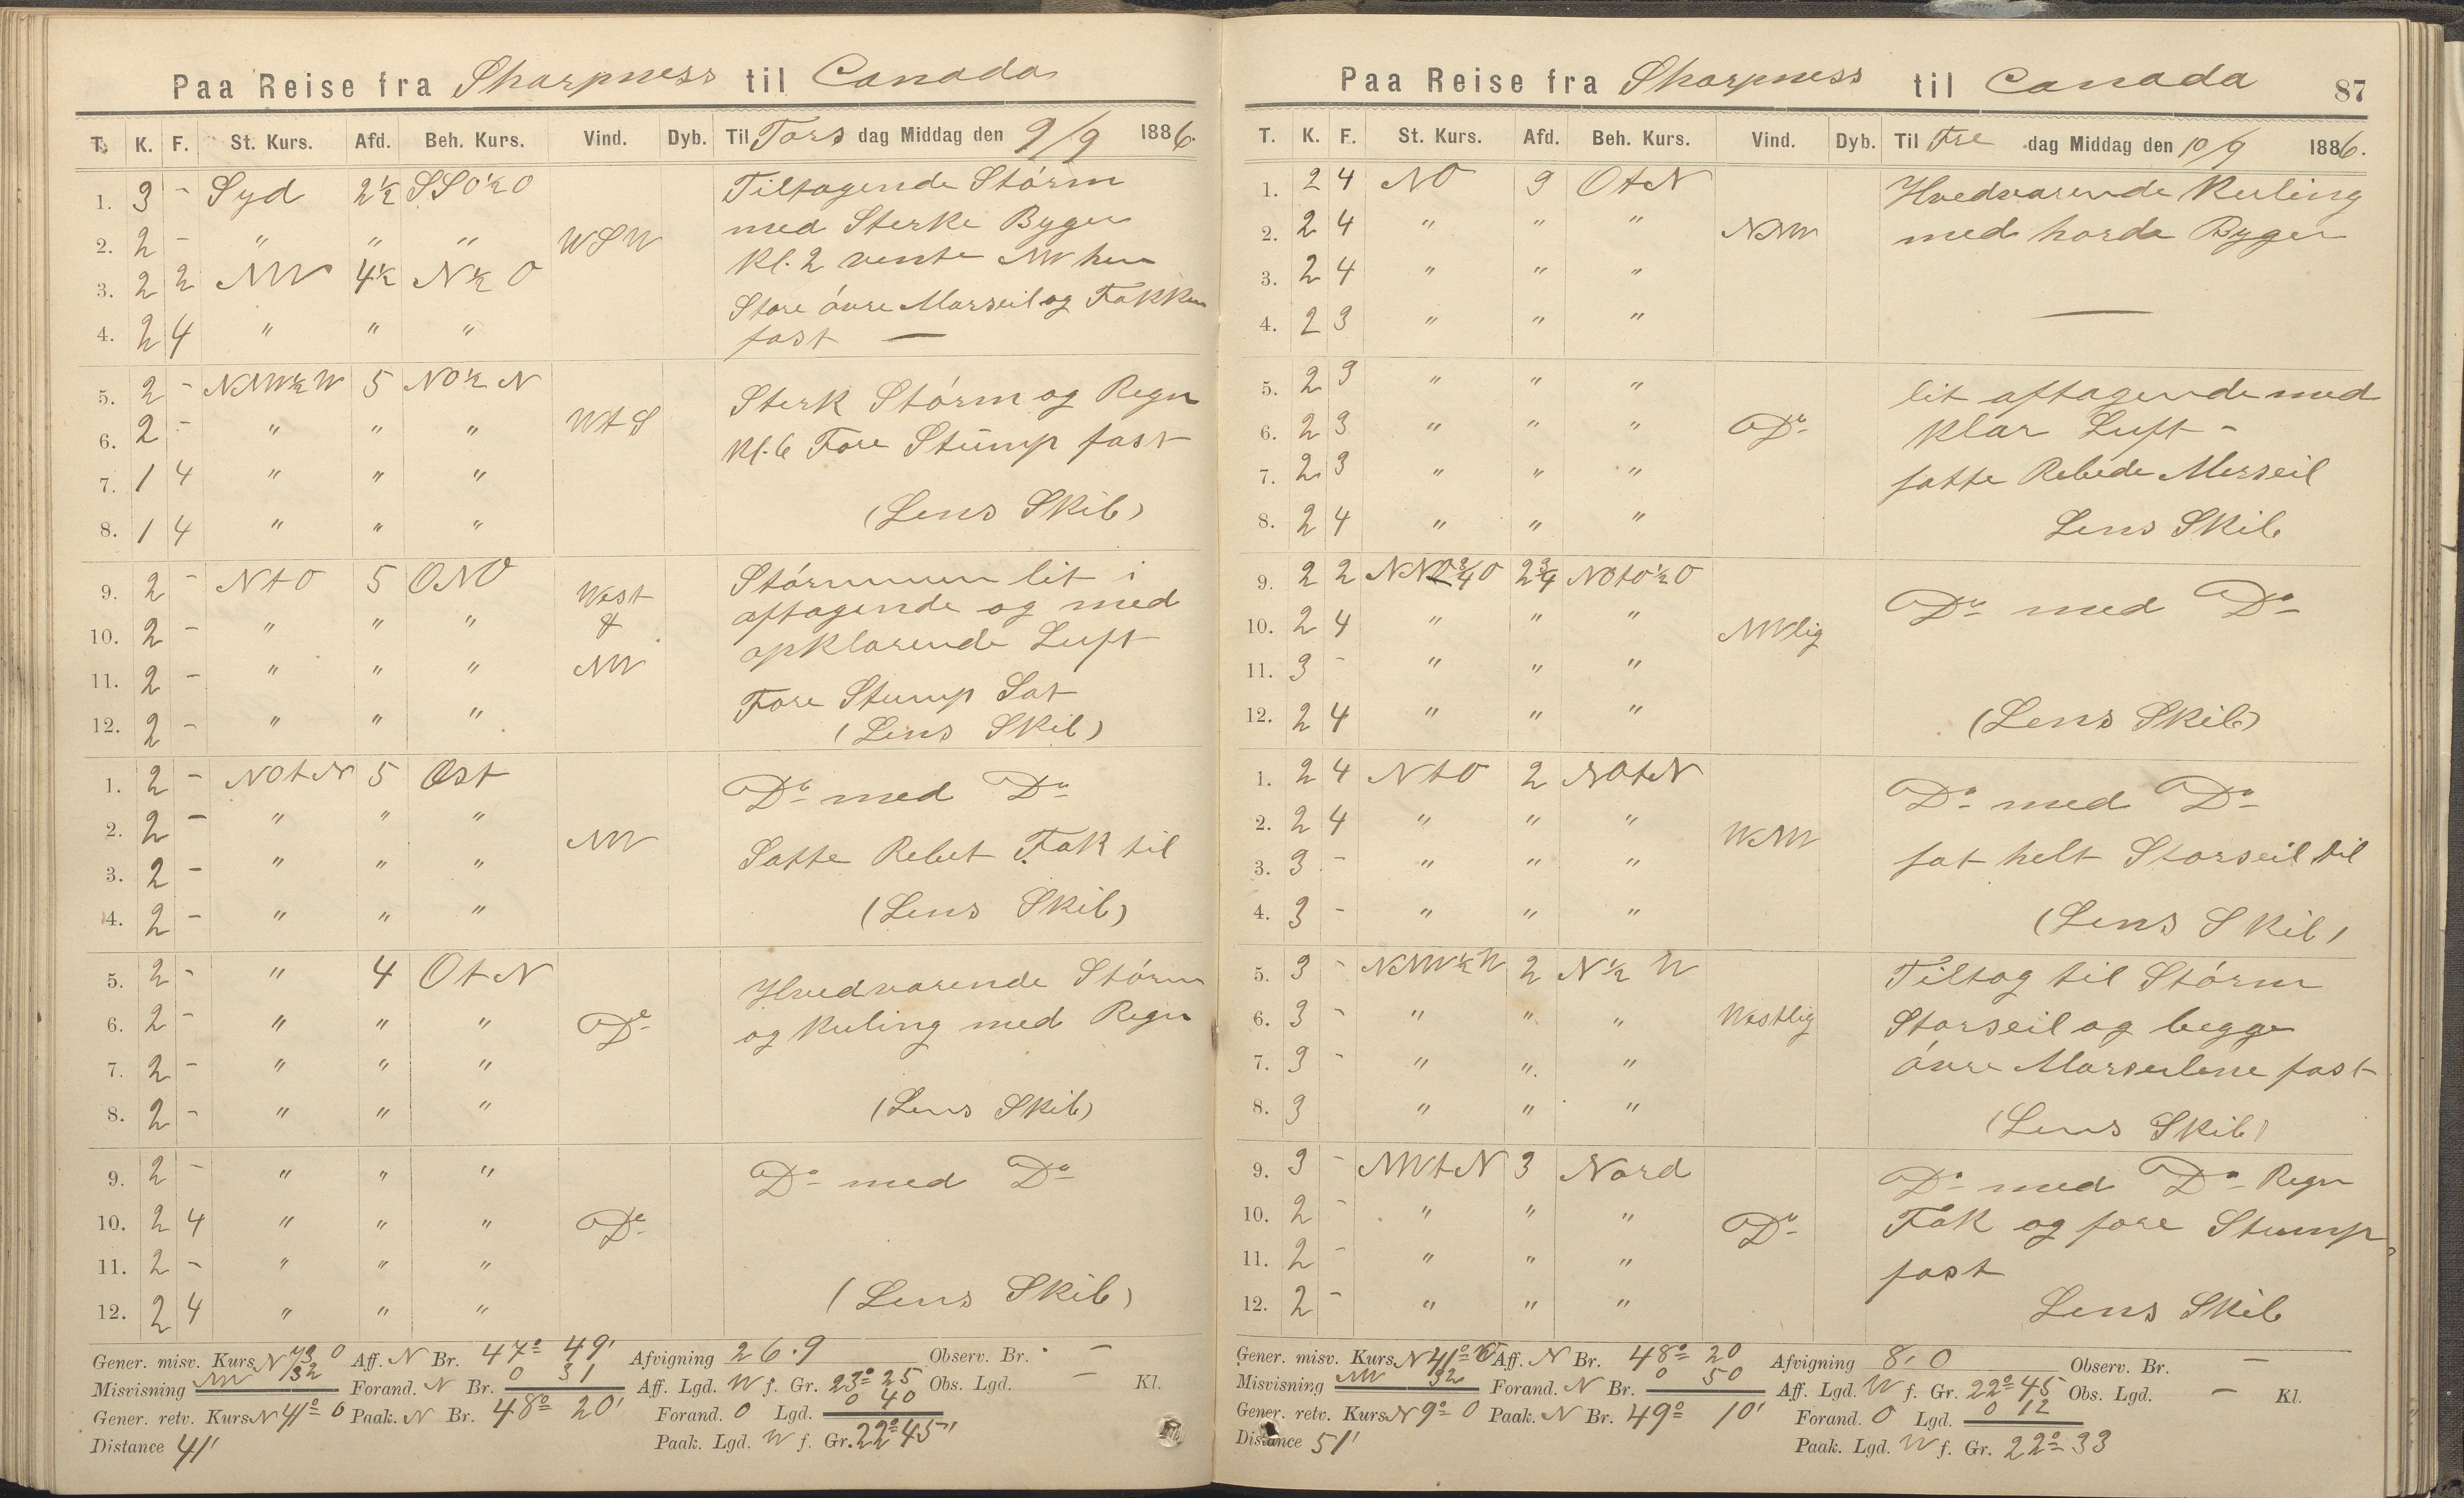 Paa Reise fra Sharpness til Canada
T. K. F. St. Kurs. Afd. Beh. Kurs. Vind. Dyb. Til Torsdag Middag den 9/9 1886.
1. 3 - Syd 2½ SSO½O Tiltagende Stórm
2. 2 - " " " WSW med Sterke Byger
3. 2 2 NW 4½ N½O Kl. 2 vente NW hen
Store óvre Marseil og Fokken
4. 2 4 " " " fast —
5. 2 - NNW½W 5 NO½N Sterk Stórm og Regn
6. 2 - " " " WtS Kl. 6 Fore Stump fast
7. 1 4 " " "
8. 1 4 " " " (Lens Skib)
9. 2 - NtO 5 ONO West Stórmmen lit i
10. 2 - " " " & aftagende og med
11. 2 - " " " NW opklarende Luft
Fore Stump Sat
12. 2 - " " " (Lens Skib)
1. 2 - NOtN 5 Ost Do med Do
2. 2 - " " " NW
3. 2 - " " " Satte Rebet Fok til
4. 2 - " " " (Lens Skib)
5. 2 - " 4 OtN Hvedvarende Stórm
6. 2 - " " " Do og Kuling med Regn
7. 2 - " " "
8. 2 - " " " (Lens Skib)
9. 2 - " " " Do med Do
10. 2 4 " " " Do
11. 2 - " " "
12. 2 4 " " " (Lens Skib)
Gener. misv. Kurs N 73 O Aff. N Br. 47° 49' Afvigning 26.9 Observ. Br. -
Misvisning NW 32 Forand. N Br. 0 31 Aff. Lgd. W f. Gr. 23° 25 Obs. Lgd. - Kl.
Gener. retv. Kurs N 41° O Paak. N Br. 48° 20' Forand. O Lgd. 0 40
Distance 41' Paak. Lgd. W f. Gr. 22° 45'
Paa Reise fra Sharpness til Canada 87
T. K. F. St. Kurs. Afd. Beh. Kurs. Vind. Dyb. Til Fredag Middag den 10/9 1886.
1. 2 4 NO 3 OtN Hvedvarende Kuling
2. 2 4 " " " NNW med harde Byger
3. 2 4 " " "
4. 2 3 " " " —
5. 2 3 " " " lit aftagende med
6. 2 3 " " " Do klar Luft -
7. 2 3 " " " satte Rebede Merseil
8. 2 4 " " " Lens Skib
9. 2 2 NNO¾O 2¾ NOtO½O Do med Do
10. 2 4 " " " NWlig
11. 3 - " " "
12. 2 4 " " " (Lens Skib)
1. 2 4 NtO 2 NOtN Do med Do
2. 2 4 " " " WNW
3. 3 - " " " sat helt Storseil til
4. 3 - " " " (Lens Skib)
5. 3 - NNW½W 2 N½W Tiltog til Stórm
6. 3 - " " " Westlig Storseil og begge
7. 3 - " " " óvre Merseilene fast
8. 3 " " " (Lens Skib)
9. 3 - NWtN 3 Nord Do med Do Regn
10. 2 - " " " Do Fok og fore Stump
11. 2 - " " " fast
12. 2 - " " " Lens Skib
Gener. misv. Kurs N 41° O Aff. N Br. 48° 20 Afvigning 8.0 Observ. Br. -
Misvisning NW 32 Forand. N Br. 0 50 Aff. Lgd. W f. Gr. 22° 45 Obs. Lgd. - Kl.
Gener. retv. Kurs N 9° O Paak. N Br. 49° 10' Forand. O Lgd. 0 12
Distance 51' Paak. Lgd. W f. Gr. 22° 33